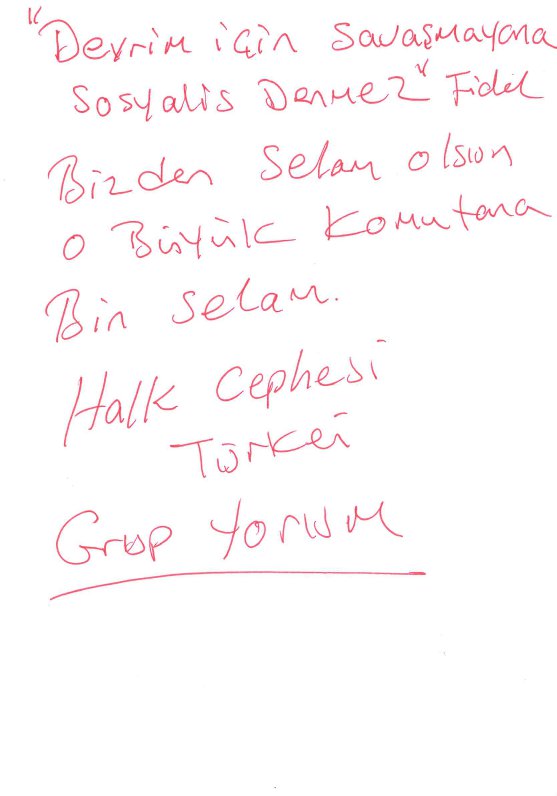 "Devrim için Savaşmayana
Sosyalis Denmez" Fidel
Bizden Selam olsun
o Büyük Komutana
Bin Selam.
Halk Cephesi
Türkei
Grup Yorum